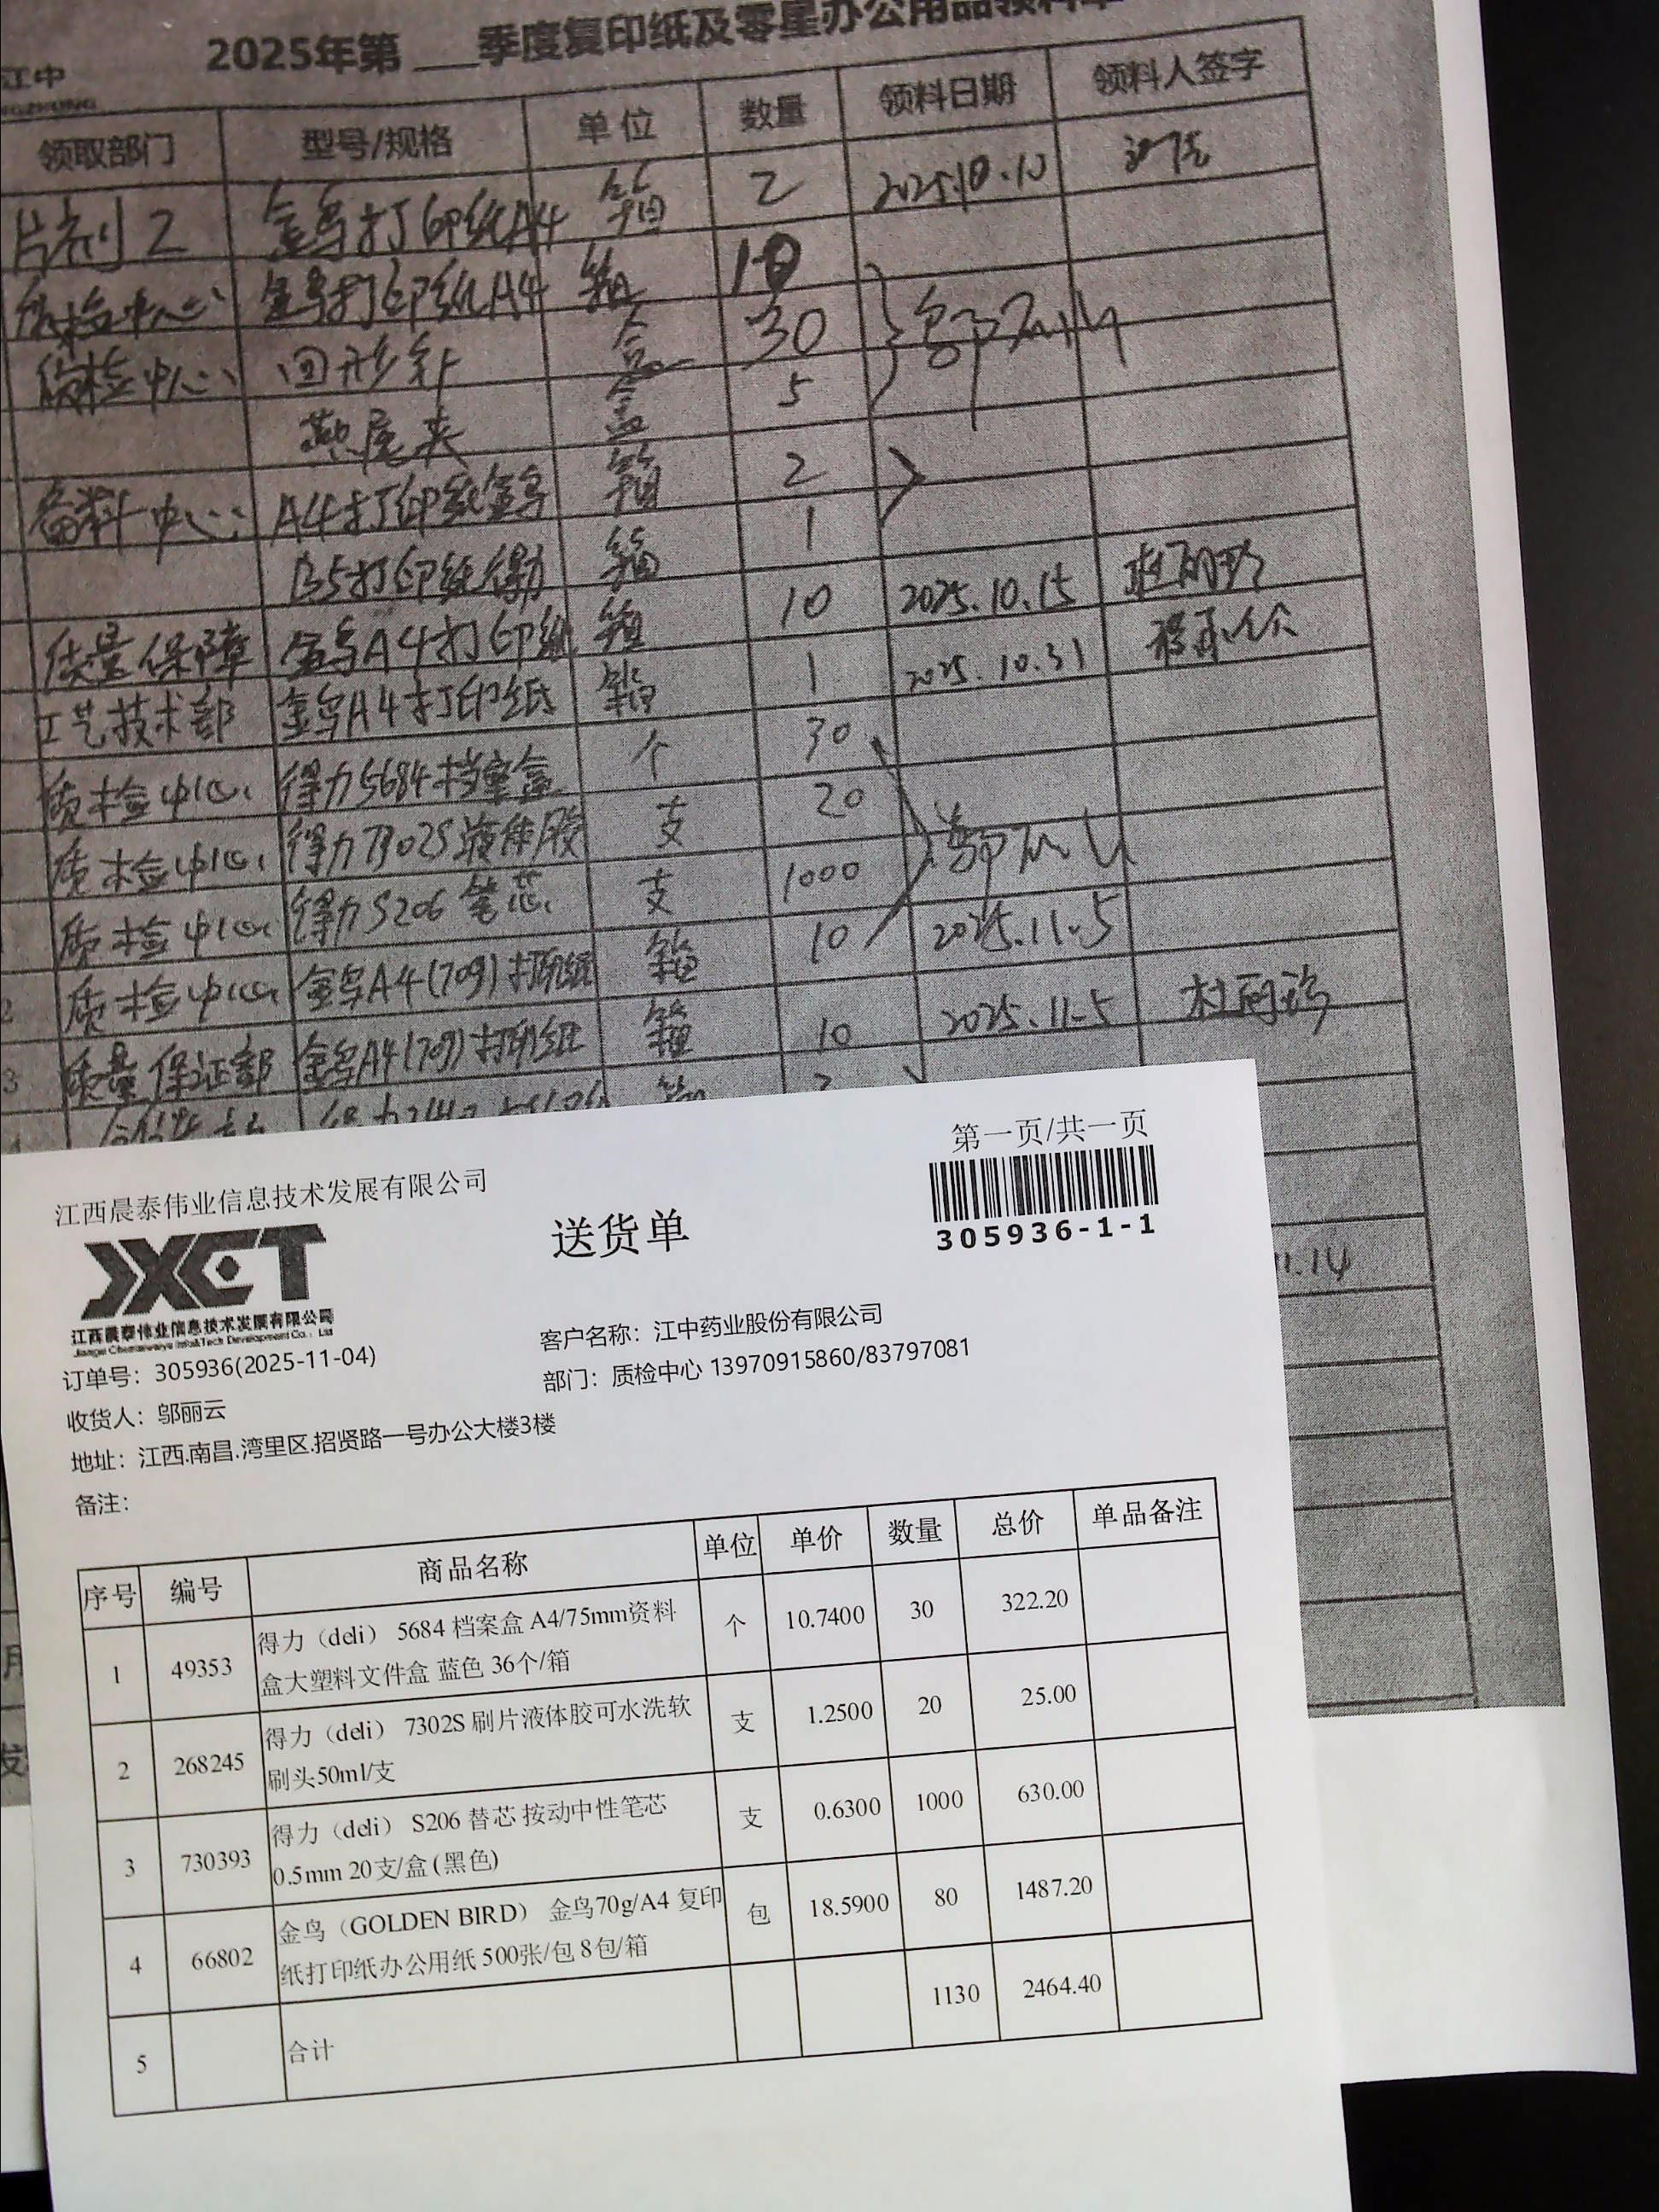 江中
2025年第___季度复印纸及零星办公用品领料单
领取部门 型号/规格 单位 数量 领料日期 领料人签字
片剂2 金鸟打印纸A4 箱 2 2025.10.10
质检中心 金鸟打印纸A4 箱 10
质检中心 回形针 盒 30
燕尾夹 盒 5
备料中心 A4打印纸金鸟 箱 2
B5打印纸得力 箱 1
质量保障 金鸟A4打印纸 箱 10 2025.10.15
工艺技术部 金鸟A4打印纸 箱 1 2025.10.31
质检中心 得力5684档案盒 个 30
质检中心 得力7302S液体胶 支 20
质检中心 得力S206笔芯 支 1000
2 质检中心 金鸟A4(70g)打印纸 箱 10 2025.11.5
3 质量保证部 金鸟A4(70g)打印纸 箱 10 2025.11.5 杜丽珍
11.14
第一页/共一页
江西晨泰伟业信息技术发展有限公司
送货单
305936-1-1
JXCT
江西晨泰伟业信息技术发展有限公司
客户名称：江中药业股份有限公司
订单号：305936(2025-11-04)
部门：质检中心 13970915860/83797081
收货人：邬丽云
地址：江西.南昌.湾里区.招贤路一号办公大楼3楼
备注：
序号 编号 商品名称 单位 单价 数量 总价 单品备注
1 49353 得力（deli） 5684 档案盒 A4/75mm资料
盒大塑料文件盒 蓝色 36个/箱 个 10.7400 30 322.20
2 268245 得力（deli） 7302S 刷片液体胶可水洗软
刷头50ml/支 支 1.2500 20 25.00
3 730393 得力（deli） S206 替芯 按动中性笔芯
0.5mm 20支/盒 (黑色) 支 0.6300 1000 630.00
4 66802 金鸟（GOLDEN BIRD） 金鸟70g/A4 复印
纸打印纸办公用纸 500张/包 8包/箱 包 18.5900 80 1487.20
5 合计 1130 2464.40